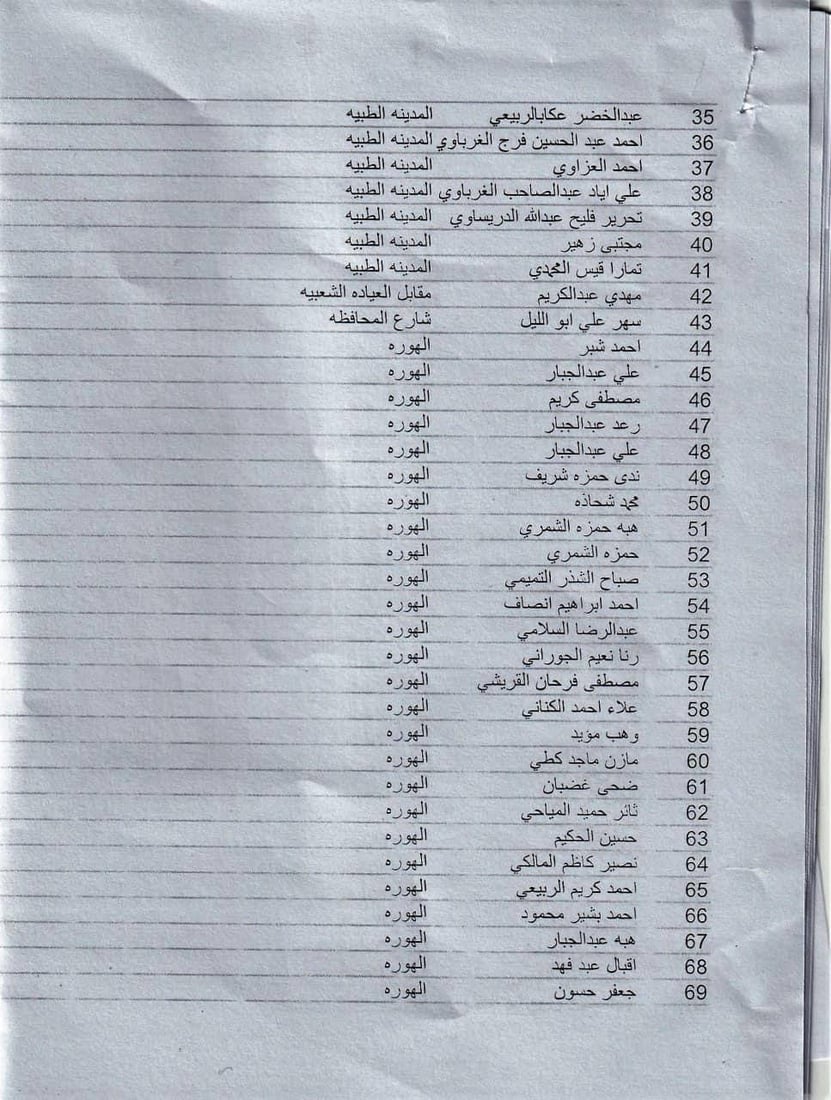 35 عبدالخضر عكابالربيعي المدينه الطبيه
36 احمد عبد الحسين فرج الغرباوي المدينه الطبيه
37 احمد العزاوي المدينه الطبيه
38 علي اياد عبدالصاحب الغرباوي المدينه الطبيه
39 تحرير فليح عبدالله الدريساوي المدينه الطبيه
40 مجتبى زهير المدينه الطبيه
41 تمارا قيس المحمدي المدينه الطبيه
42 مهدي عبدالكريم مقابل العياده الشعبيه
43 سهر علي ابو الليل شارع المحافظه
44 احمد شبر الهوره
45 علي عبدالجبار الهوره
46 مصطفى كريم الهوره
47 رعد عبدالجبار الهوره
48 علي عبدالجبار الهوره
49 ندى حمزه شريف الهوره
50 محمد شحاذه الهوره
51 هبه حمزه الشمري الهوره
52 حمزه الشمري الهوره
53 صباح الشذر التميمي الهوره
54 احمد ابراهيم انصاف الهوره
55 عبدالرضا السلامي الهوره
56 رنا نعيم الجوراني الهوره
57 مصطفى فرحان القريشي الهوره
58 علاء احمد الكناني الهوره
59 وهب مؤيد الهوره
60 مازن ماجد كطي الهوره
61 ضحى غضبان الهوره
62 ثائر حميد المياحي الهوره
63 حسين الحكيم الهوره
64 نصير كاظم المالكي الهوره
65 احمد كريم الربيعي الهوره
66 احمد بشير محمود الهوره
67 هبه عبدالجبار الهوره
68 اقبال عبد فهد الهوره
69 جعفر حسون الهوره